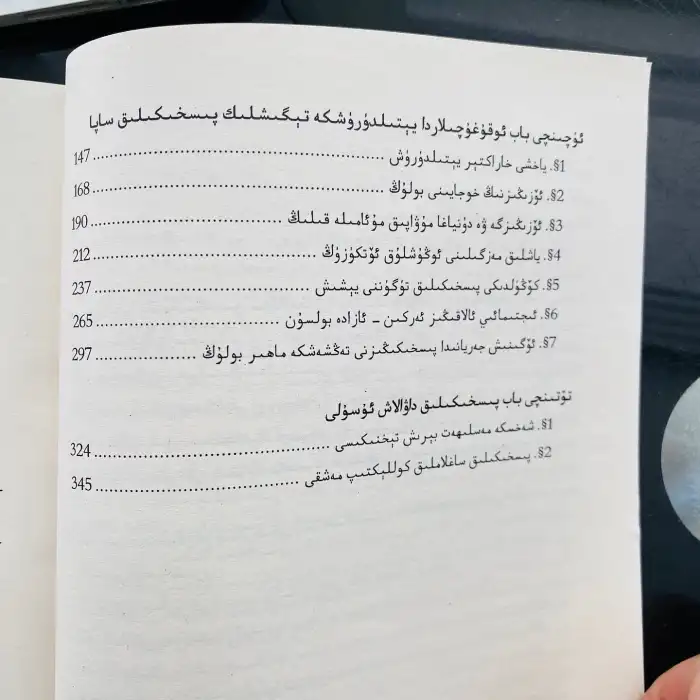 ئۈچىنچى باب ئوقۇغۇچىلاردا يېتىلدۈرۈشكە تېگىشلىك پىسخىكىلىق ساپا
§1. ياخشى خاراكتېر يېتىلدۈرۈش ................ 147
§2. ئۆزىڭىزنىڭ خوجايىنى بولۇڭ ................ 168
§3. ئۆزىڭىزگە ۋە دۇنياغا مۇۋاپىق مۇئامىلە قىلىڭ ................ 190
§4. ياشلىق مەزگىلىنى ئوڭۇشلۇق ئۆتكۈزۈڭ ................ 212
§5. كۆڭۈلدىكى پىسخىكىلىق تۈگۈننى يېشىش ................ 237
§6. ئىجتىمائىي ئالاقىڭىز ئەركىن - ئازادە بولسۇن ................ 265
§7. ئۆگىنىش جەريانىدا پىسخىكىڭىزنى تەڭشەشكە ماھىر بولۇڭ ................ 297
تۆتىنچى باب پىسخىكىلىق داۋالاش ئۇسۇلى
§1. شەخسكە مەسلىھەت بېرىش تېخنىكىسى ................ 324
§2. پىسخىكىلىق ساغلاملىق كوللېكتىپ مەشقى ................ 345